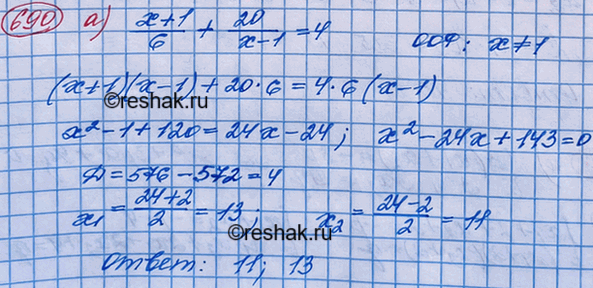 690 а) (x+1)/6 + 20/(x-1) = 4 ООФ: x≠1
(x+1)(x-1) + 20·6 = 4·6(x-1)
©reshak.ru
x² - 1 + 120 = 24x - 24; x² - 24x + 143 = 0
Д = 576 - 572 = 4
x₁ = (24+2)/2 = 13; x₂ = (24-2)/2 = 11
©reshak.ru
Ответ: 11; 13